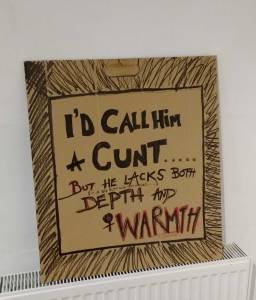 I'D CALL HIM
A CUNT.....
BUT HE LACKS BOTH
DEPTH AND
WARMTH